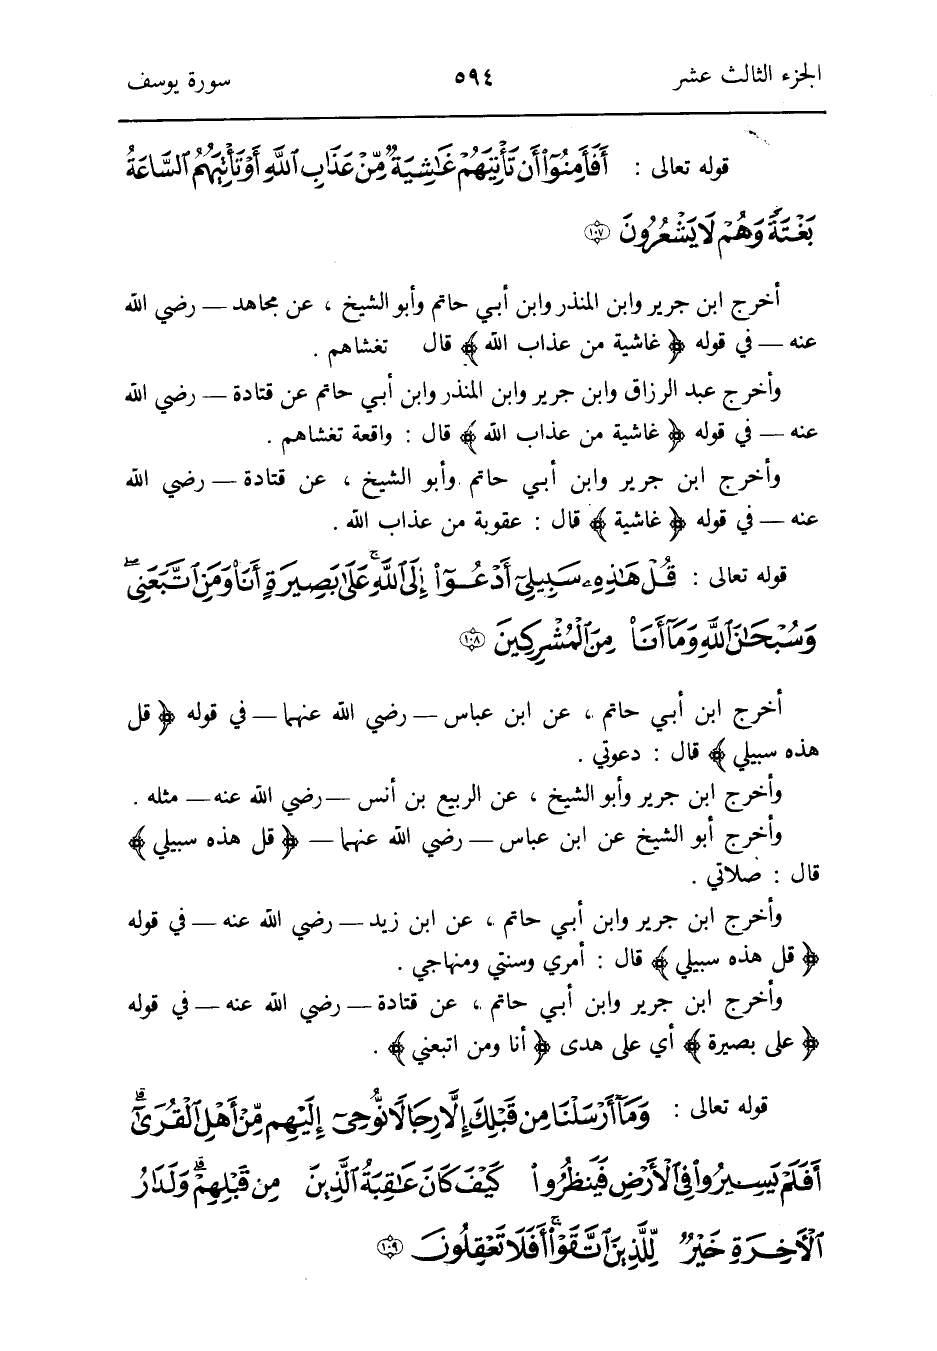 الجزء الثالث عشر ٥٩٤ سورة يوسف
قوله تعالى : أَفَأَمِنُوٓا۟ أَن تَأْتِيَهُمْ غَـٰشِيَةٌ مِّنْ عَذَابِ ٱللَّهِ أَوْ تَأْتِيَهُمُ ٱلسَّاعَةُ
بَغْتَةً وَهُمْ لَا يَشْعُرُونَ ١٠٧
أخرج ابن جرير وابن المنذر وابن أبي حاتم وأبو الشيخ ، عن مجاهد — رضي الله
عنه — في قوله ﴿ غاشية من عذاب الله ﴾ قال تغشاهم .
وأخرج عبد الرزاق وابن جرير وابن المنذر وابن أبي حاتم عن قتادة — رضي الله
عنه — في قوله ﴿ غاشية من عذاب الله ﴾ قال : واقعة تغشاهم .
وأخرج ابن جرير وابن أبي حاتم وأبو الشيخ ، عن قتادة — رضي الله
عنه — في قوله ﴿ غاشية ﴾ قال : عقوبة من عذاب الله .
قوله تعالى : قُلْ هَـٰذِهِۦ سَبِيلِىٓ أَدْعُوٓا۟ إِلَى ٱللَّهِ ۚ عَلَىٰ بَصِيرَةٍ أَنَا۠ وَمَنِ ٱتَّبَعَنِى ۖ
وَسُبْحَـٰنَ ٱللَّهِ وَمَآ أَنَا۠ مِنَ ٱلْمُشْرِكِينَ ١٠٨
أخرج ابن أبي حاتم ، عن ابن عباس — رضي الله عنهما — في قوله ﴿ قل
هذه سبيلي ﴾ قال : دعوتي .
وأخرج ابن جرير وأبو الشيخ ، عن الربيع بن أنس — رضي الله عنه — مثله .
وأخرج أبو الشيخ عن ابن عباس — رضي الله عنهما — ﴿ قل هذه سبيلي ﴾
قال : صلاتي .
وأخرج ابن جرير وابن أبي حاتم ، عن ابن زيد — رضي الله عنه — في قوله
﴿ قل هذه سبيلي ﴾ قال : أمري وسنتي ومنهاجي .
وأخرج ابن جرير وابن أبي حاتم ، عن قتادة — رضي الله عنه — في قوله
﴿ على بصيرة ﴾ أي على هدى ﴿ أنا ومن اتبعني ﴾ .
قوله تعالى : وَمَآ أَرْسَلْنَا مِن قَبْلِكَ إِلَّا رِجَالًا نُّوحِىٓ إِلَيْهِم مِّنْ أَهْلِ ٱلْقُرَىٰٓ ۗ
أَفَلَمْ يَسِيرُوا۟ فِى ٱلْأَرْضِ فَيَنظُرُوا۟ كَيْفَ كَانَ عَـٰقِبَةُ ٱلَّذِينَ مِن قَبْلِهِمْ ۗ وَلَدَارُ
ٱلْـَٔاخِرَةِ خَيْرٌ لِّلَّذِينَ ٱتَّقَوْا۟ ۚ أَفَلَا تَعْقِلُونَ ١٠٩